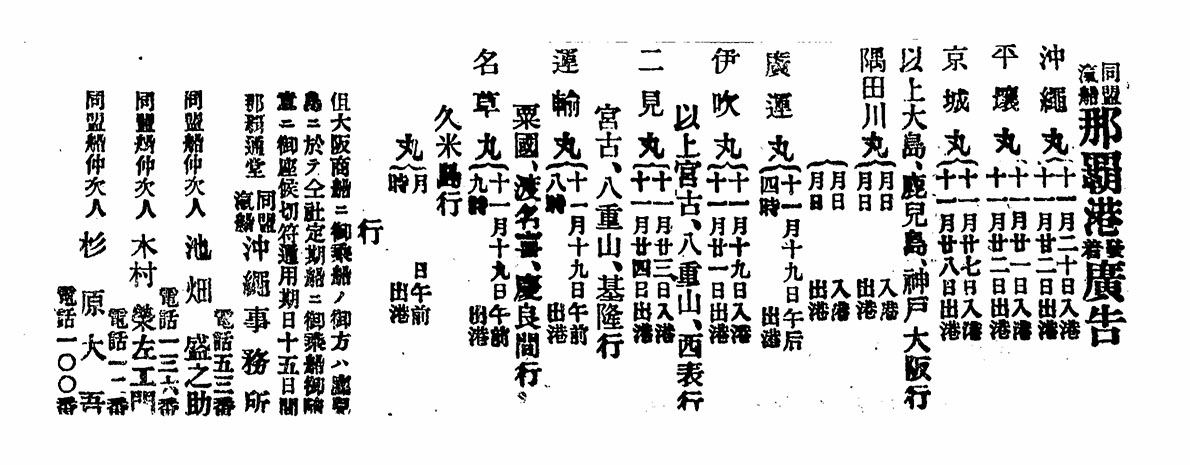 同盟
滊船
那覇港發着廣告
沖繩丸
十一月二十日入港
十一月廿二日出港
平壤丸
十一月廿一日入港
十一月廿二日出港
京城丸
十一月廿七日入港
十一月廿八日出港
以上大島、鹿兒島、神戸大阪行
隅田川丸
月日 入港
月日 出港
月日 入港
月日 出港
廣運丸
十一月十九日午后
四時 出港
伊吹丸
十一月十九日入港
十一月廿一日出港
以上宮古、八重山、西表行
二見丸
十一月廿三日入港
十一月廿四日出港
宮古、八重山、基隆行
運輸丸
十一月十九日午前
八時 出港
粟國、渡名喜、慶良間行
名草丸
十一月十九日午前
九時 出港
久米島行
丸
月 日午前
時 出港
行
但大阪商船ニ御乘船ノ御方ハ鹿兒
島ニ於テ仝社定期船ニ御乘船御隨
意ニ御座候切符通用期日十五日間
那覇通堂
同盟
滊船
沖繩事務所
電話五三番
同盟船仲次人 池畑盛之助
電話一三六番
同盟船仲次人 木村榮左エ門
電話一二番
同盟船仲次人 杉原大吾
電話一〇〇番